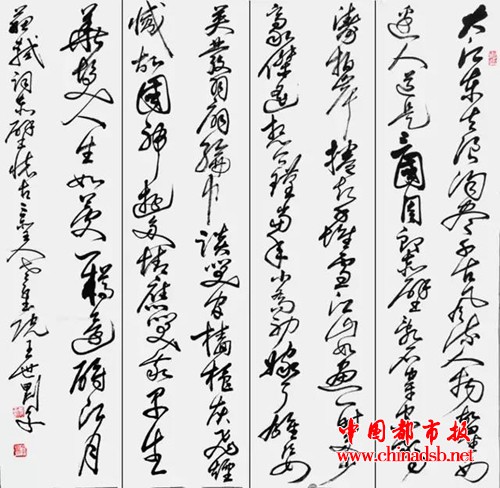 大江东去浪淘尽千古风流人物故垒西
边人道是三國周郎赤壁乱石穿空惊
涛拍岸捲起千堆雪江山如画一时多少
豪傑遥想公瑾当年小喬初嫁了雄姿
英發羽扇纶巾谈笑间樯櫓灰飞煙
滅故國神遊多情應笑我早生
華髮人生如夢一樽還酹江月
蘇軾詞赤壁怀古 王世刚书
中国都市报
www.chinadsb.net